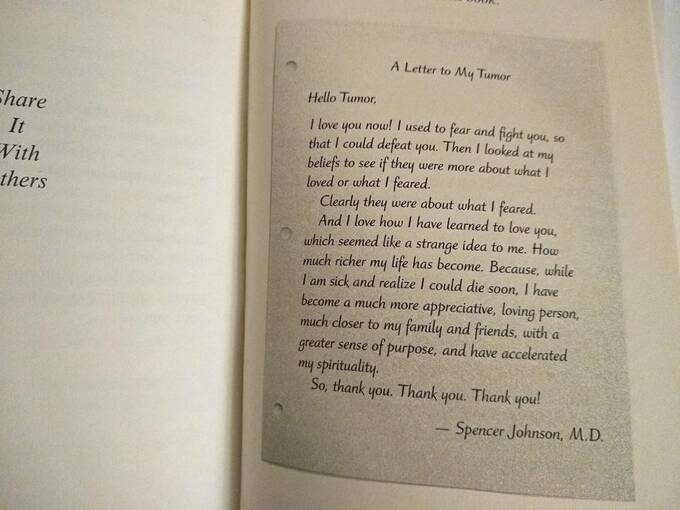 Share
It
With
thers
book.
A Letter to My Tumor
Hello Tumor,
I love you now! I used to fear and fight you, so
that I could defeat you. Then I looked at my
beliefs to see if they were more about what I
loved or what I feared.
Clearly they were about what I feared.
And I love how I have learned to love you,
which seemed like a strange idea to me. How
much richer my life has become. Because, while
I am sick and realize I could die soon, I have
become a much more appreciative, loving person,
much closer to my family and friends, with a
greater sense of purpose, and have accelerated
my spirituality.
So, thank you. Thank you. Thank you!
— Spencer Johnson, M.D.